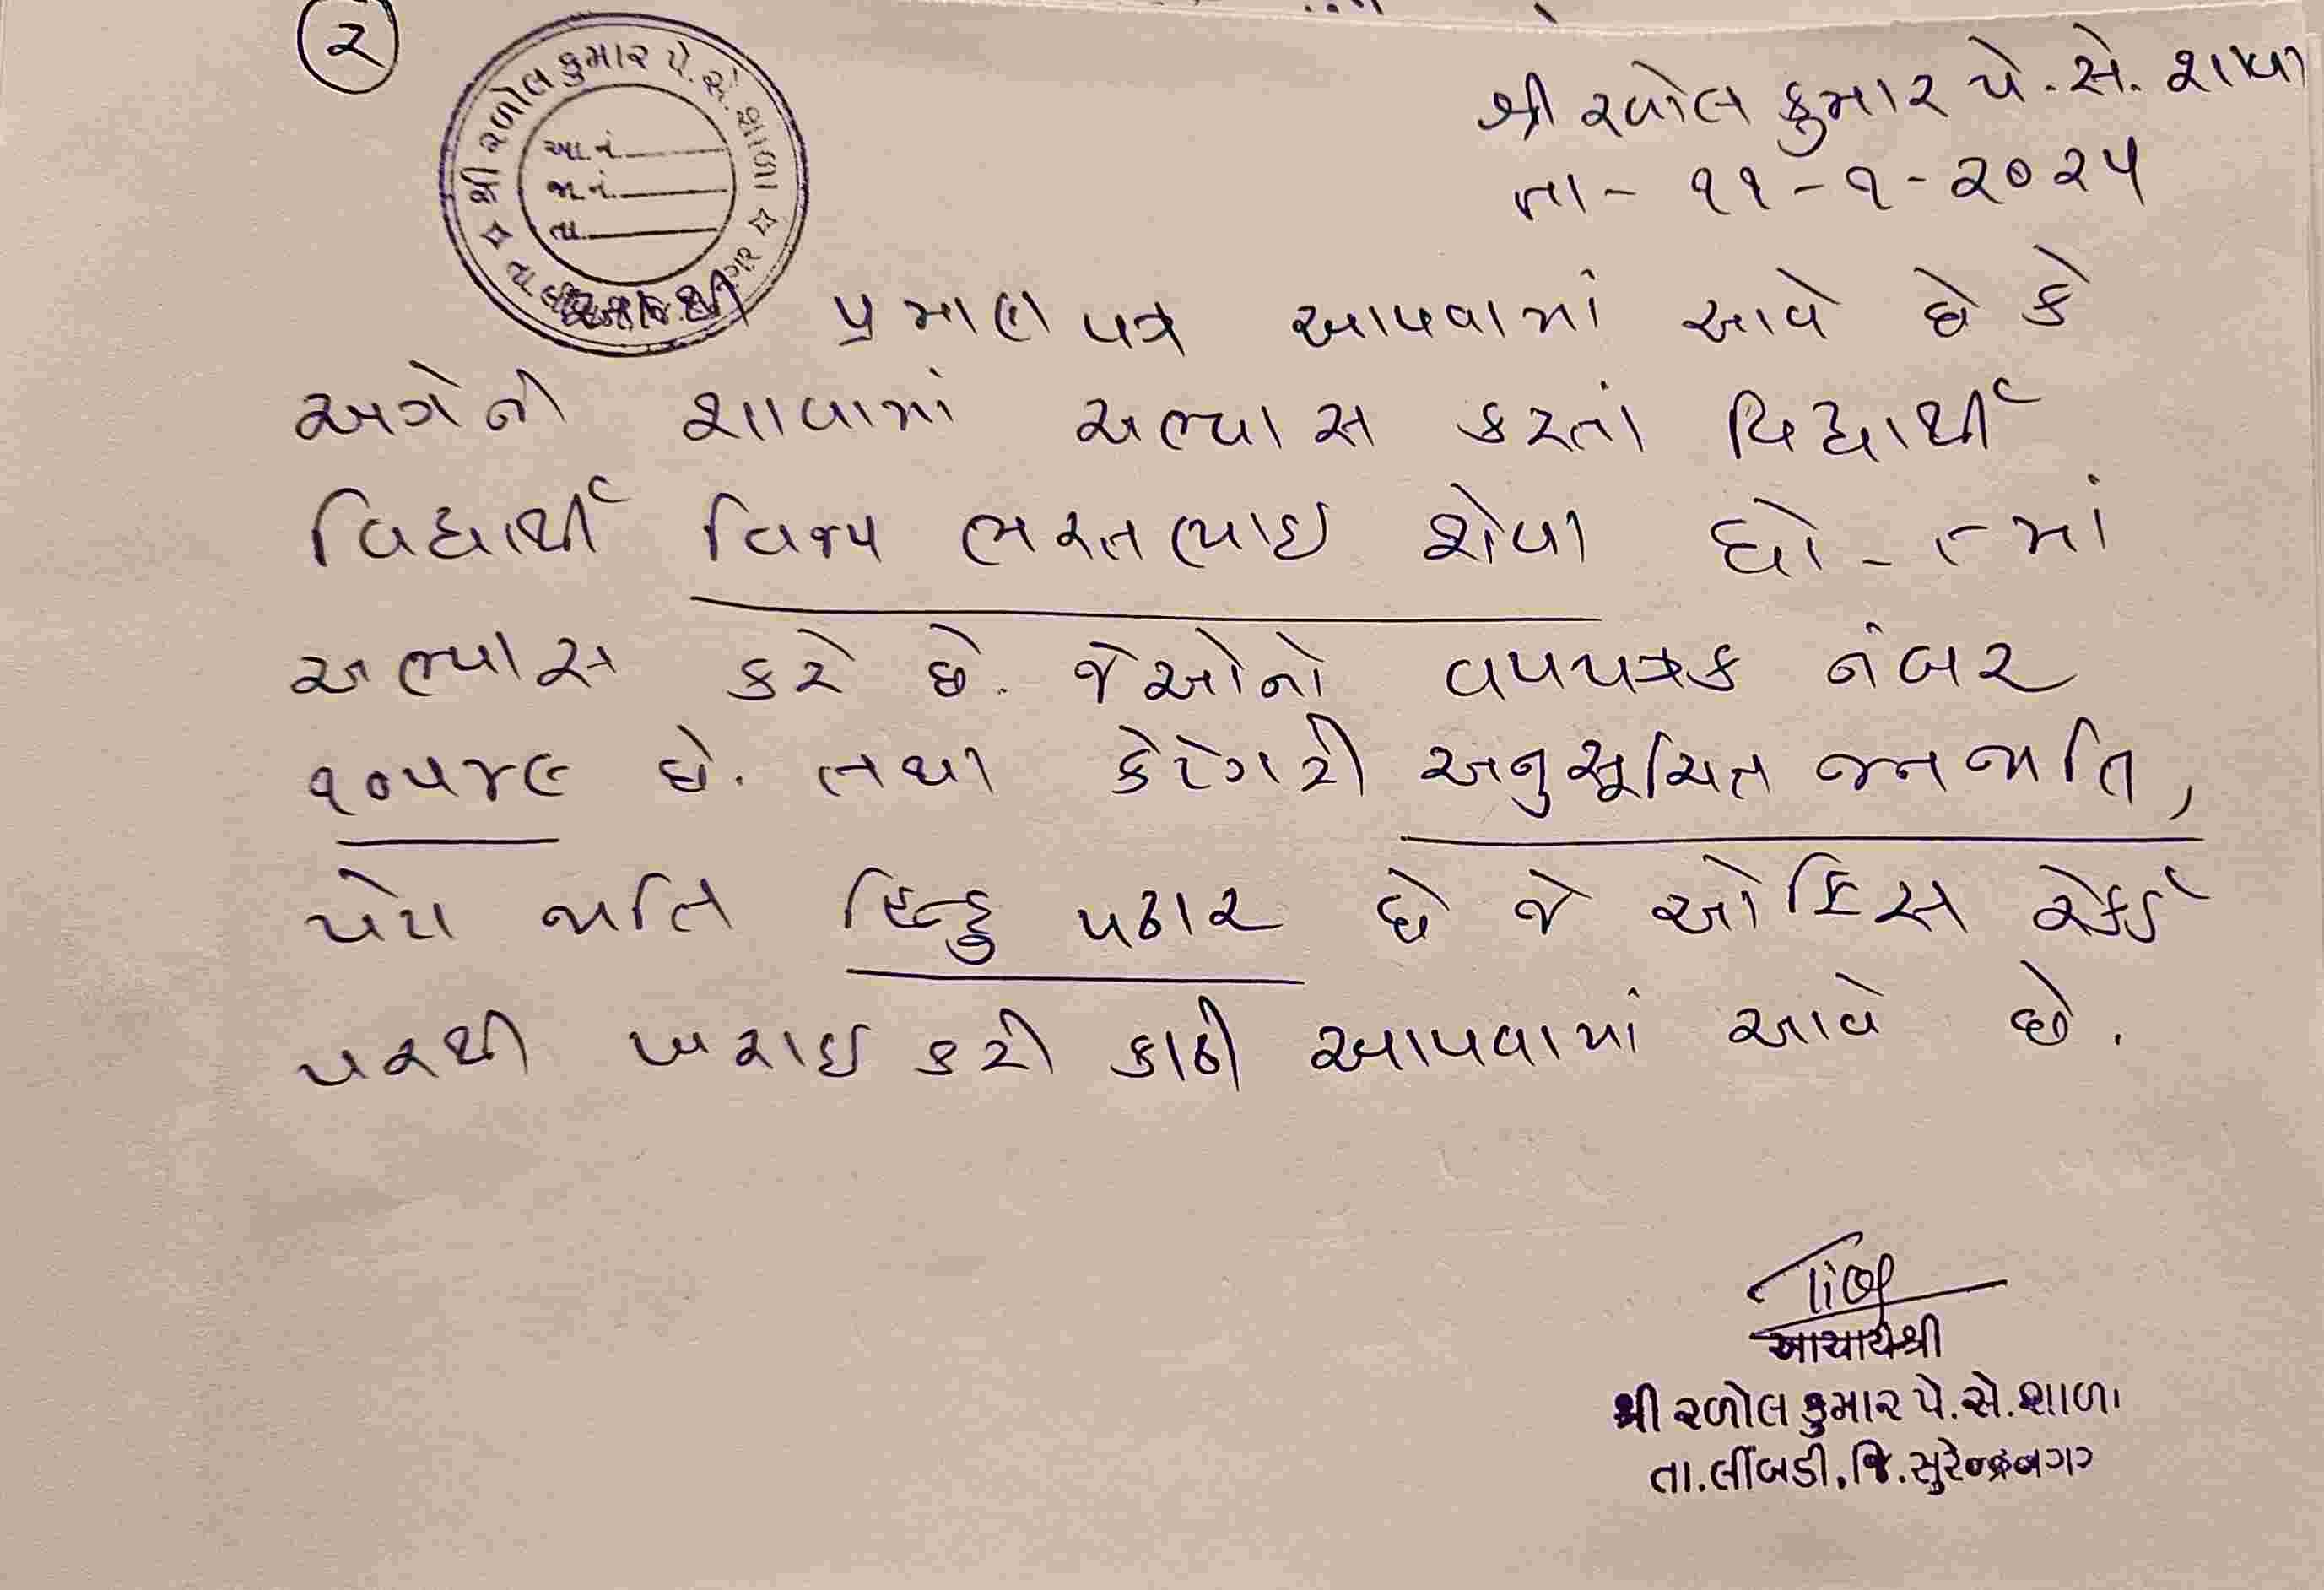 ૨
શ્રી રળોલ કુમાર પે. સે. શાળા
આ.નં.
જા.નં.
તા.
શ્રી રળોલ કુમાર પે. સે. શાળા
તા - ૧૧ - ૧ - ૨૦૨૫
પ્રમાણ પત્ર આપવામાં આવે છે કે
અત્રેની શાળામાં અભ્યાસ કરતાં વિદ્યાર્થી
વિદ્યાર્થી વિજય ભરતભાઇ શેળા ધો - ૯માં
અભ્યાસ કરે છે. જેઓનો વયપત્રક નંબર
૧૦૫૪૯ છે. તથા કેટેગરી અનુસૂચિત જનજાતિ,
પેટા જાતિ હિન્દુ પઢાર છે જે ઓફિસ રેકર્ડ
પરથી ખરાઇ કરી કાઢી આપવામાં આવે છે.
આચાર્યશ્રી
શ્રી રળોલ કુમાર પે.સે.શાળા
તા.લીંબડી, જિ.સુરેન્દ્રનગર